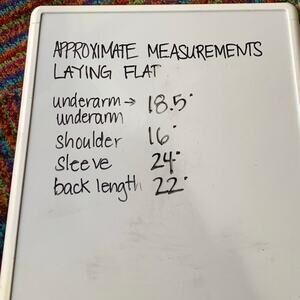 APPROXIMATE MEASUREMENTS
LAYING FLAT
underarm → 18.5"
underarm
shoulder 16"
sleeve 24"
back length 22"